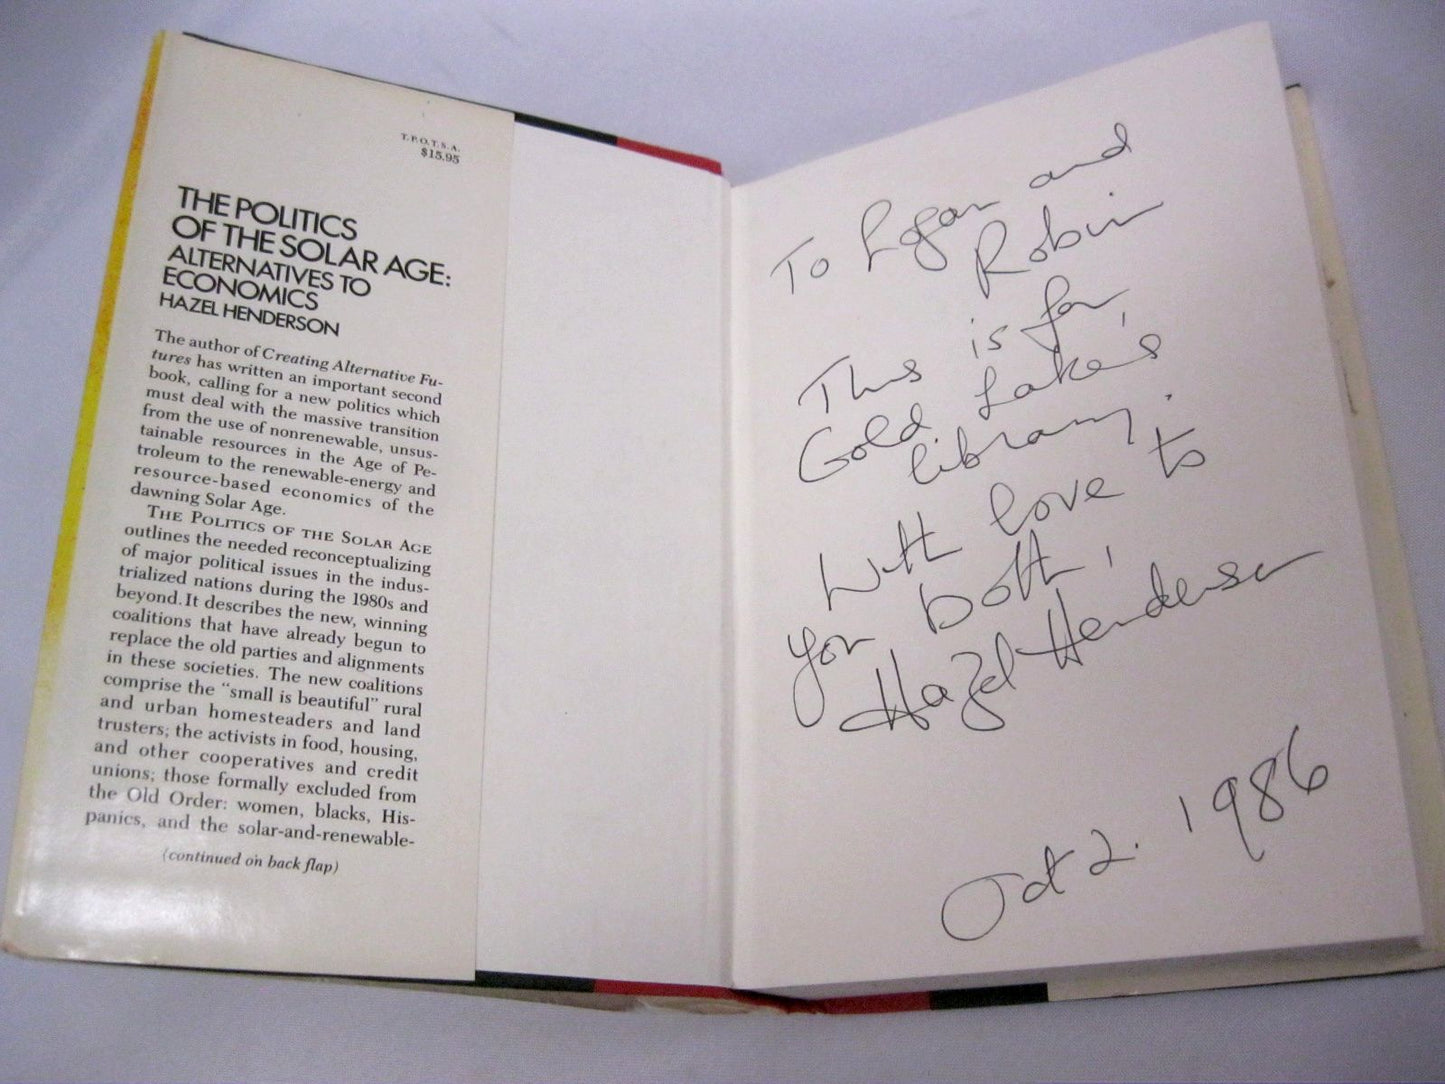 T.P.O.T.S.A.
$15.95
THE POLITICS
OF THE SOLAR AGE:
ALTERNATIVES TO
ECONOMICS
HAZEL HENDERSON
The author of Creating Alternative Fu-
tures has written an important second
book, calling for a new politics which
must deal with the massive transition
from the use of nonrenewable, unsus-
tainable resources in the Age of Pe-
troleum to the renewable-energy and
resource-based economics of the
dawning Solar Age.
THE POLITICS OF THE SOLAR AGE
outlines the needed reconceptualizing
of major political issues in the indus-
trialized nations during the 1980s and
beyond. It describes the new, winning
coalitions that have already begun to
replace the old parties and alignments
in these societies. The new coalitions
comprise the "small is beautiful" rural
and urban homesteaders and land
trusters; the activists in food, housing,
and other cooperatives and credit
unions; those formally excluded from
the Old Order: women, blacks, His-
panics, and the solar-and-renewable-
(continued on back flap)
To Logan and
Robin
This is for
Gold Lake's
library.
With love to
you both,
Hazel Henderson
Oct 2. 1986